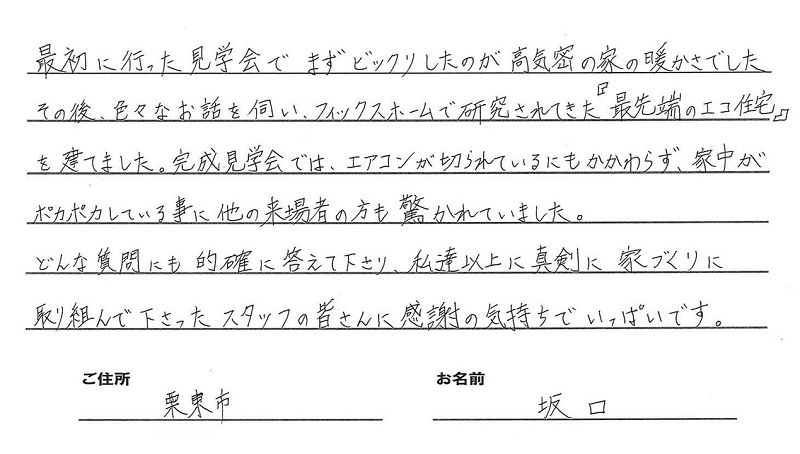 最初に行った見学会で まずビックリしたのが 高気密の家の暖かさでした
その後、色々なお話を伺い、フィックスホームで研究されてきた『最先端のエコ住宅』
を建てました。完成見学会では、エアコンが切られているにもかかわらず、家中が
ポカポカしている事に他の来場者の方も驚かれていました。
どんな質問にも的確に答えて下さり、私達以上に真剣に家づくりに
取り組んで下さったスタッフの皆さんに感謝の気持ちでいっぱいです。
ご住所 栗東市 お名前 坂口